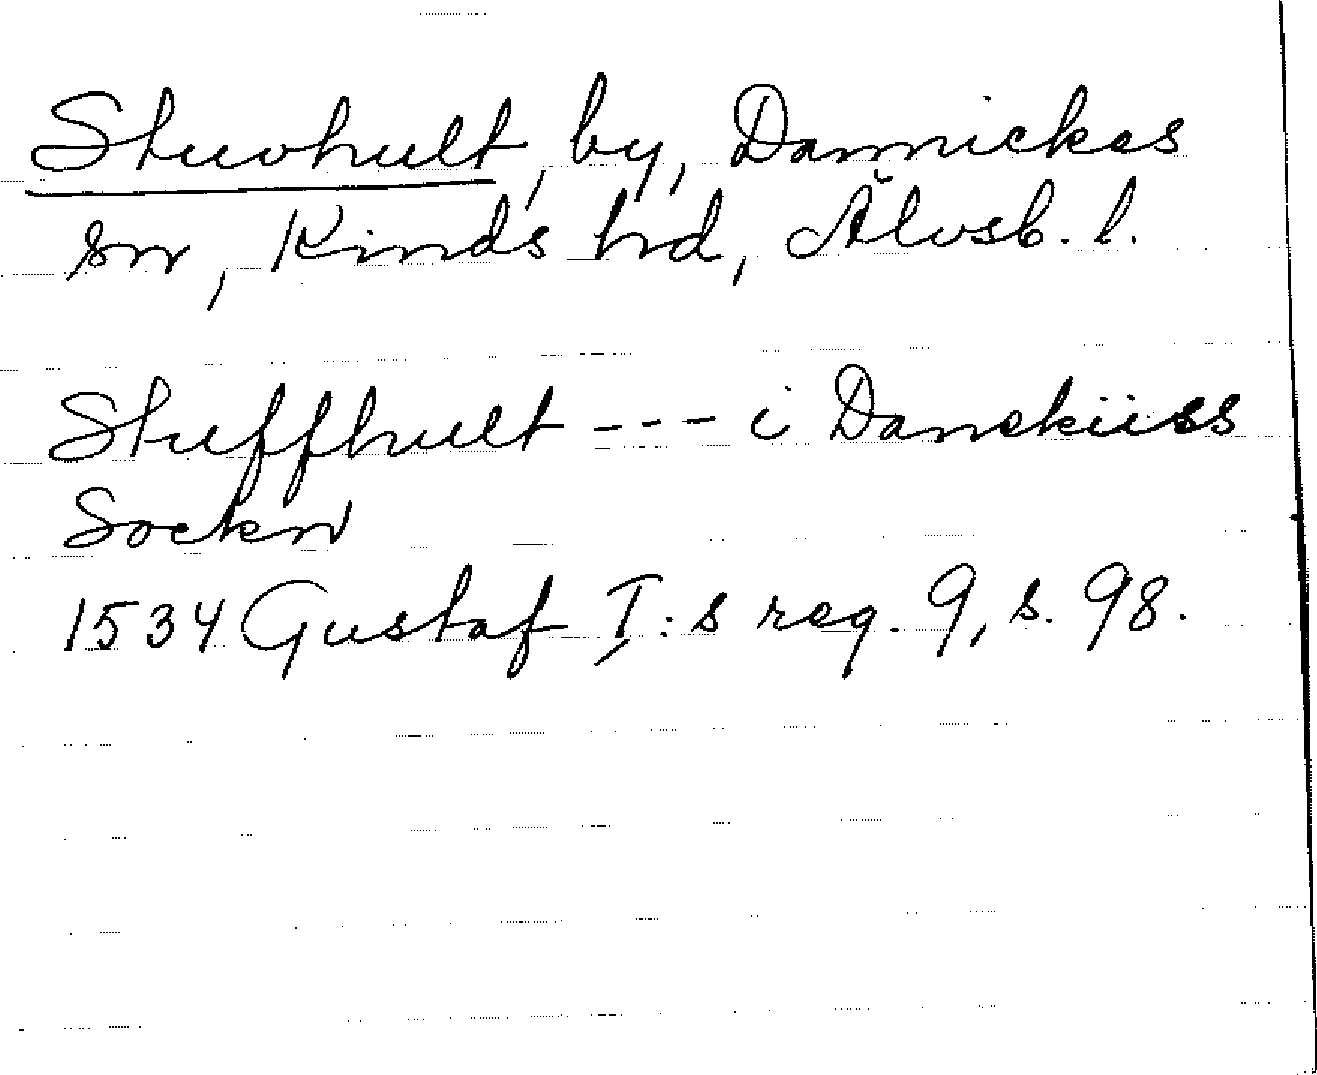 Stuvhult, by, Dannickes
sn, Kinds hd, Älvsb. l.
Stuffhult --- i Danekiiss
Sockn
1534 Gustaf I:s reg. 9, s. 98.